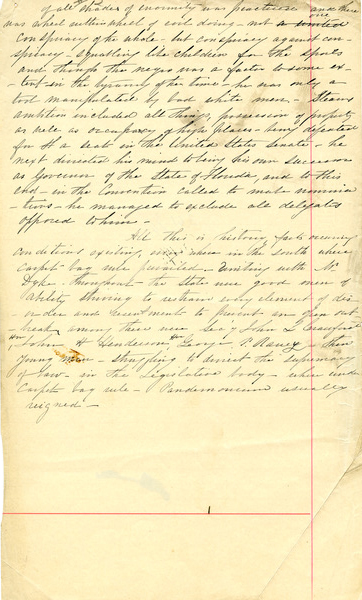 of all shades of enormity was practiced and there
was wheel within wheel of evil doing - not a united
one
Conspiracy of the whole - but conspiracy against con-
spiracy - squabbling like children for the spoils
and though the negro was a factor to some ex-
tent in the tyranny of the times - he was only a
tool manipulated by bad white men - Stearns
ambition included all things, possession of property
as well as occupancy of high places - being defeated
for a seat in the United States Senate - he
next directed his mind to being his own successor
as Governor of the State of Florida, and to this
end - in the Convention called to make nomina
tions - he managed to exclude all delegates
opposed to him -
All this is history facts occurring
conditions existing, where in the south where
carpet bag rule prevailed - Uniting with Mr
Dyke - throughout the state were good men of
ability, striving to restrain every element of dis-
order and resentment to prevent an open out-
break, among these were Secy John L Crawford
Hon John A Henderson, Hon George P. Raney - then
young men - struggling to direct the supremacy
of law - in the Legislative body - where under
Carpet bag rule - Pandemonium usually
reigned -